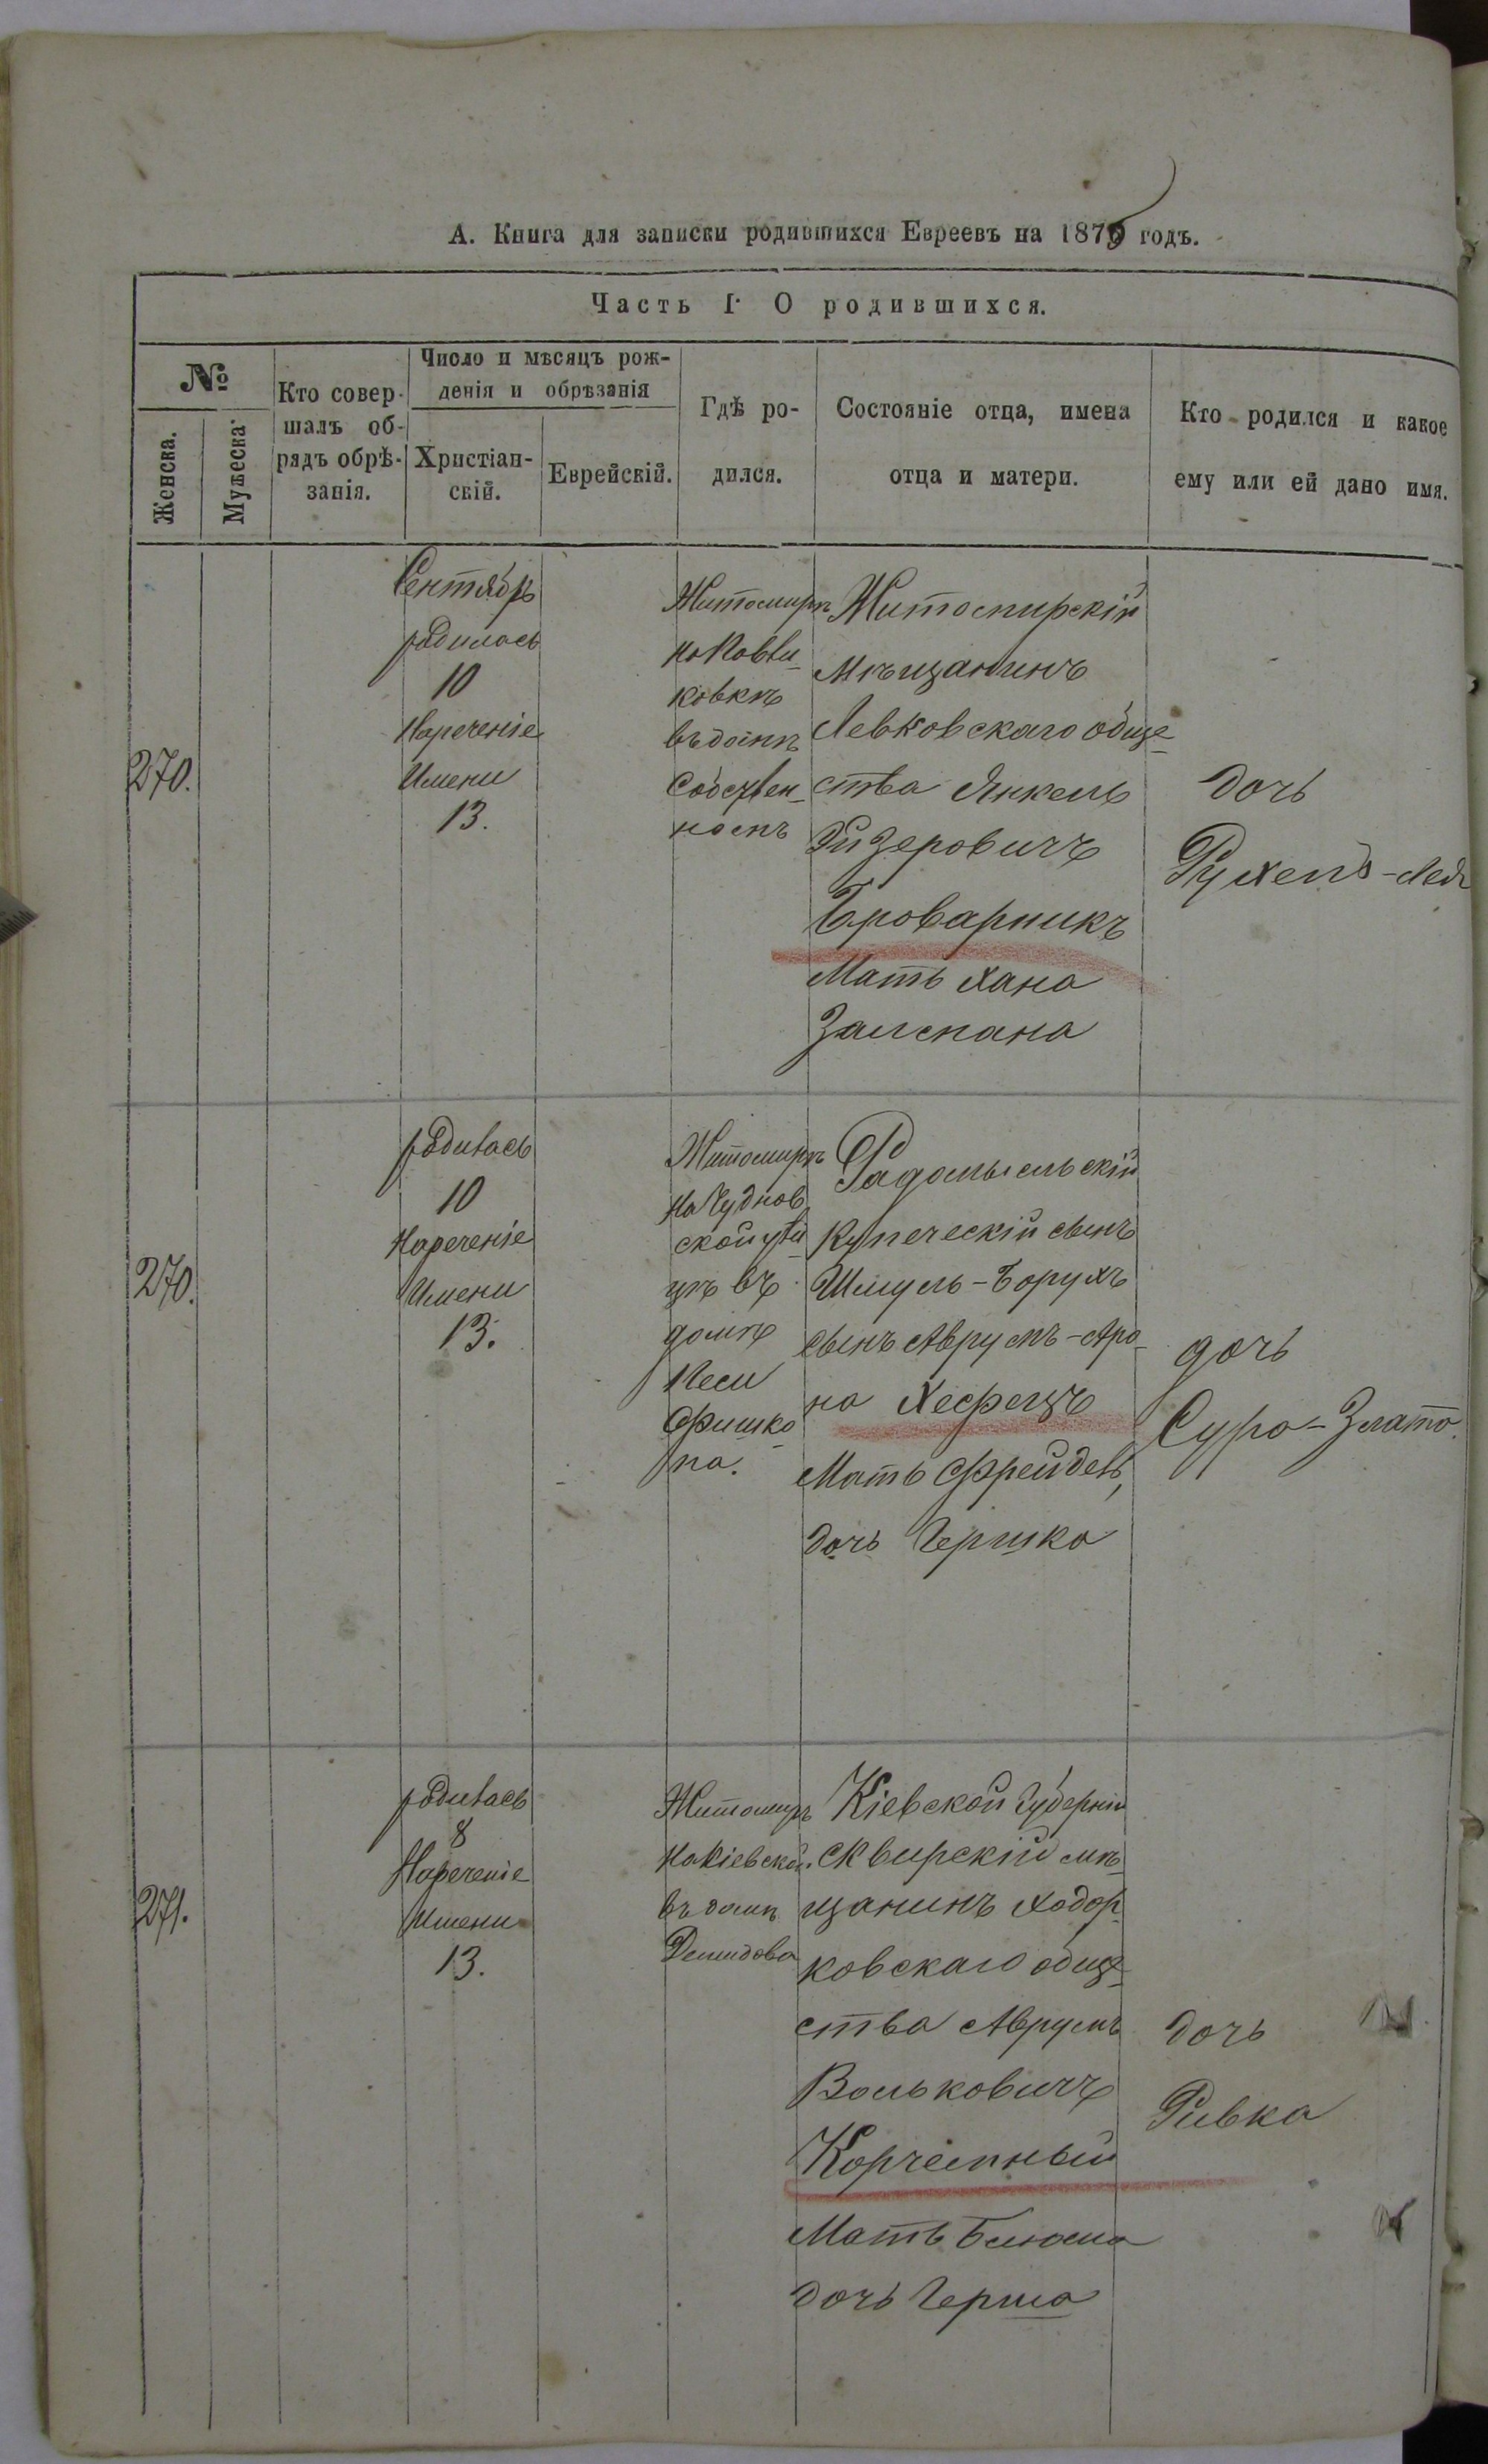 А. Книга для записки родившихся Евреевъ на 1875 годъ.
Часть I. О родившихся.
№
Женска.
Мужеска.
Кто совер-
шалъ об-
рядъ обрѣ-
занія.
Число и мѣсяцъ рож-
денія и обрѣзанія
Христіан-
скій.
Еврейскій.
Гдѣ ро-
дился.
Состояніе отца, имена
отца и матери.
Кто родился и какое
ему или ей дано имя.
270.
Сентябрь
родилась
10
Нареченіе
Имени
13.
Житомирѣ
на
ковкѣ
въ домѣ
собствен-
номъ
Житомирскій
мѣщанинъ
Левковскаго обще-
ства Янкель
Броварникъ
Мать Хана
Залмана
дочь
Рухель-Лея
270.
родилась
10
Нареченіе
Имени
13.
Житомирѣ
на Чуднов
ской ули
цѣ въ
домѣ
Песи
Фишко
па.
Радомысльскій
Купеческій сынъ
Шмуль-Борухъ
сынъ Аврумъ-Аро-
на Хефецъ
Мать Фрейдель,
дочь Гершка
дочь
Сура-Злата.
271.
родилась
8
Нареченіе
Имени
13.
Житомирѣ
на Кіевской
въ домѣ
Демидова
Кіевской Губерніи
Сквирскій мѣ-
щанинъ Ходор-
ковскаго обще-
ства Аврумъ
Вольковичъ
Корчемный
Мать Блюма
дочь Герша
дочь
Ривка